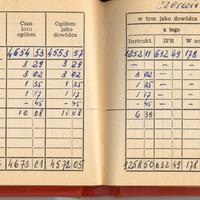 Czerwie
Czas lotu ogółem
Ogółem jako dowódca
w tym jako dowódca
z tego
Instrukt. IFR W no
4654 53 4553 57 1252 11 632 49 178
3 29 3 29
3 02 3 02 3 02
1 35 1 35 1 35
1 17 1 17 1 17
- 45 - 45 - 45
10 08 10 08 6 39
4673 01 4572 05 1258 50 632 49 178